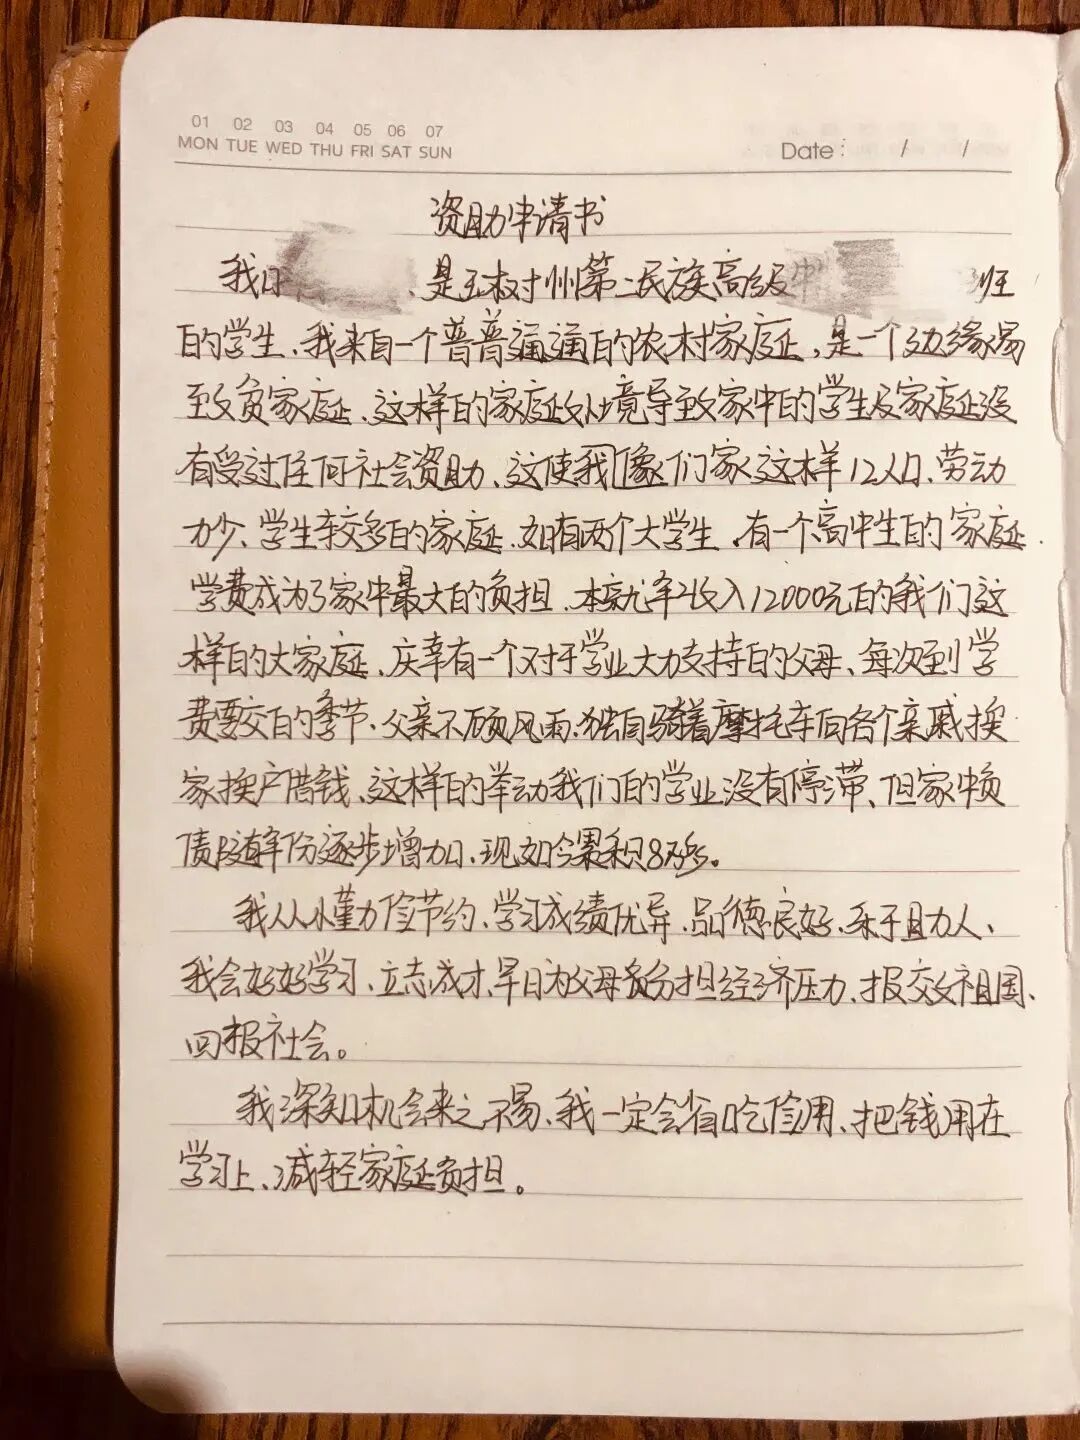 01 02 03 04 05 06 07
MON TUE WED THU FRI SAT SUN
Date: / /
资助申请书
我 是玉树州第二民族高级中 班
的学生、我来自一个普普通通的农村家庭,是一个边缘易
致贫家庭、这样的家庭处境导致家中的学生及家庭没
有受过任何社会资助、这使我像们家这样12人口、劳动
力少、学生较多的家庭、如有两个大学生、有一个高中生的家庭、
学费成为了家中最大的负担、本就年收入12000元的我们这
样的大家庭、庆幸有一个对于学业大力支持的父母、每次到学
费要交的季节、父亲不顾风雨、独自骑着摩托车向各个亲戚挨
家挨户借钱、这样的举动我们的学业没有停滞、但家中负
债随年份逐步增加、现如今累积8万多。
我从小勤俭节约、学习成绩优异、品德良好、乐于助人、
我会好好学习、立志成才、早日为父母分担经济压力、报效祖国、
回报社会。
我深知机会来之不易、我一定会省吃俭用、把钱用在
学习上、减轻家庭负担。